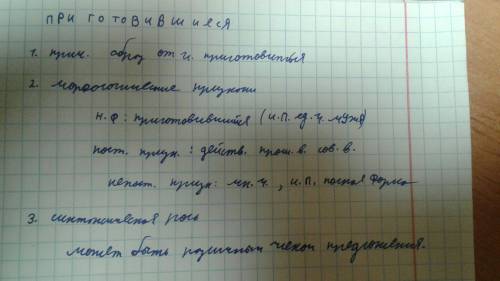 ПРИГОТОВИВШИЕСЯ
1. прич. образ от г. приготовиться
2. морфологические признаки
н.ф: приготовившийся (и.П. ед.ч. муж)
пост. призн.: действ. прош.в. сов.в.
непост. призн: мн.ч., и.П. полная форма
3. синтаксическая роль
может быть различным членом предложения.